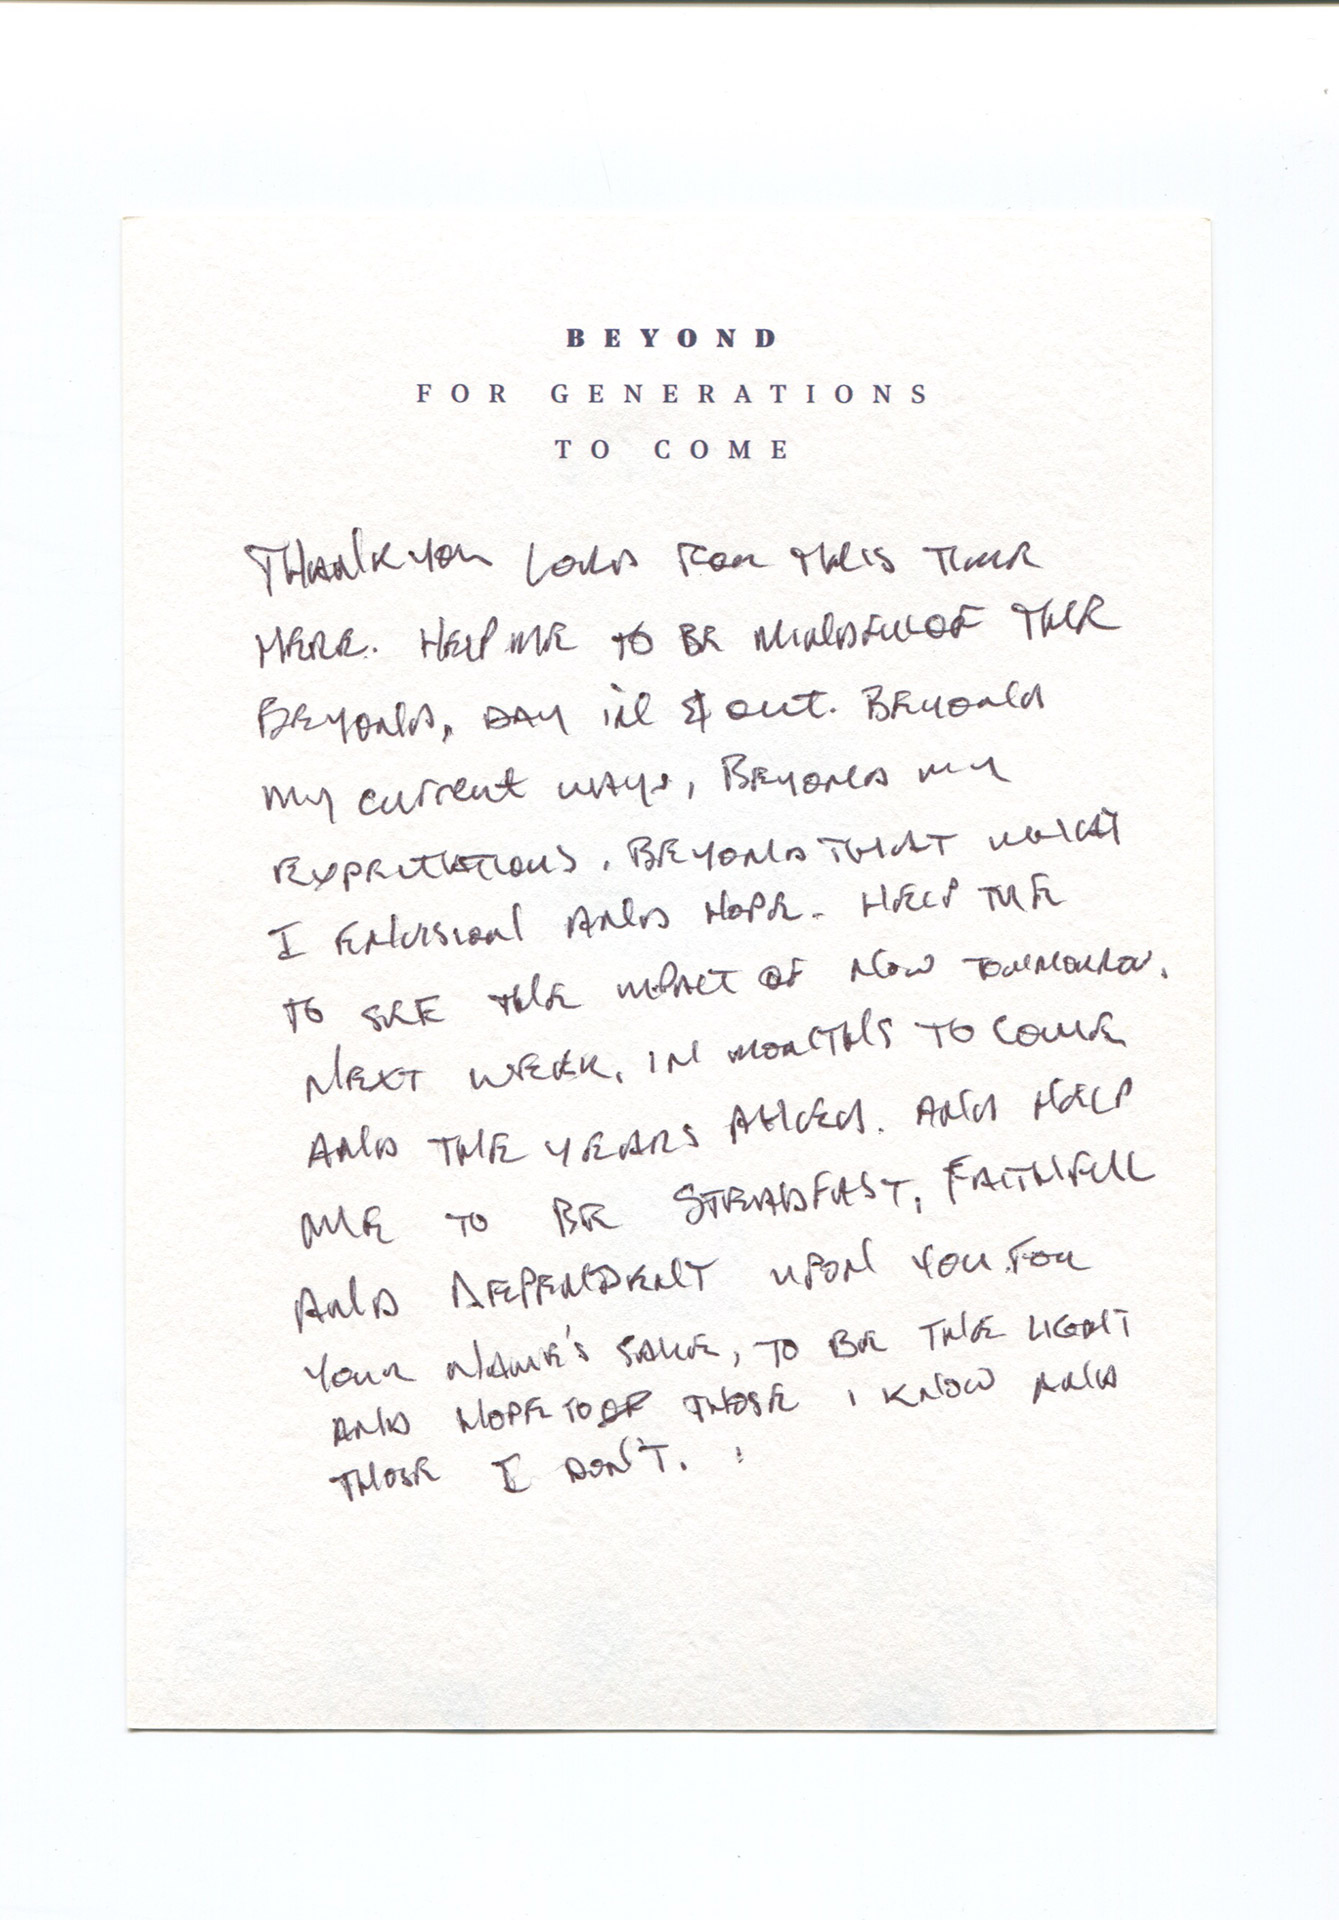 BEYOND
FOR GENERATIONS
TO COME
THANK YOU LORD FOR THIS TIME
HERE. HELP ME TO BE MINDFUL OF THE
BEYOND, DAY IN & OUT. BEYOND
my current ways, BEYOND my
EXPECTATIONS, BEYOND THAT WHICH
I ENVISION AND HOPE. HELP ME
TO SEE THE IMPACT OF NOW TOMMORROW,
NEXT WEEK, IN MONTHS TO COME
AND THE YEARS AHEAD. AND HELP
ME TO BE STEADFAST, FAITHFUL
AND DEPENDENT UPON YOU FOR
YOUR NAME'S SAKE, TO BE THE LIGHT
AND HOPE TO THOSE I KNOW AND
THOSE I DON'T.